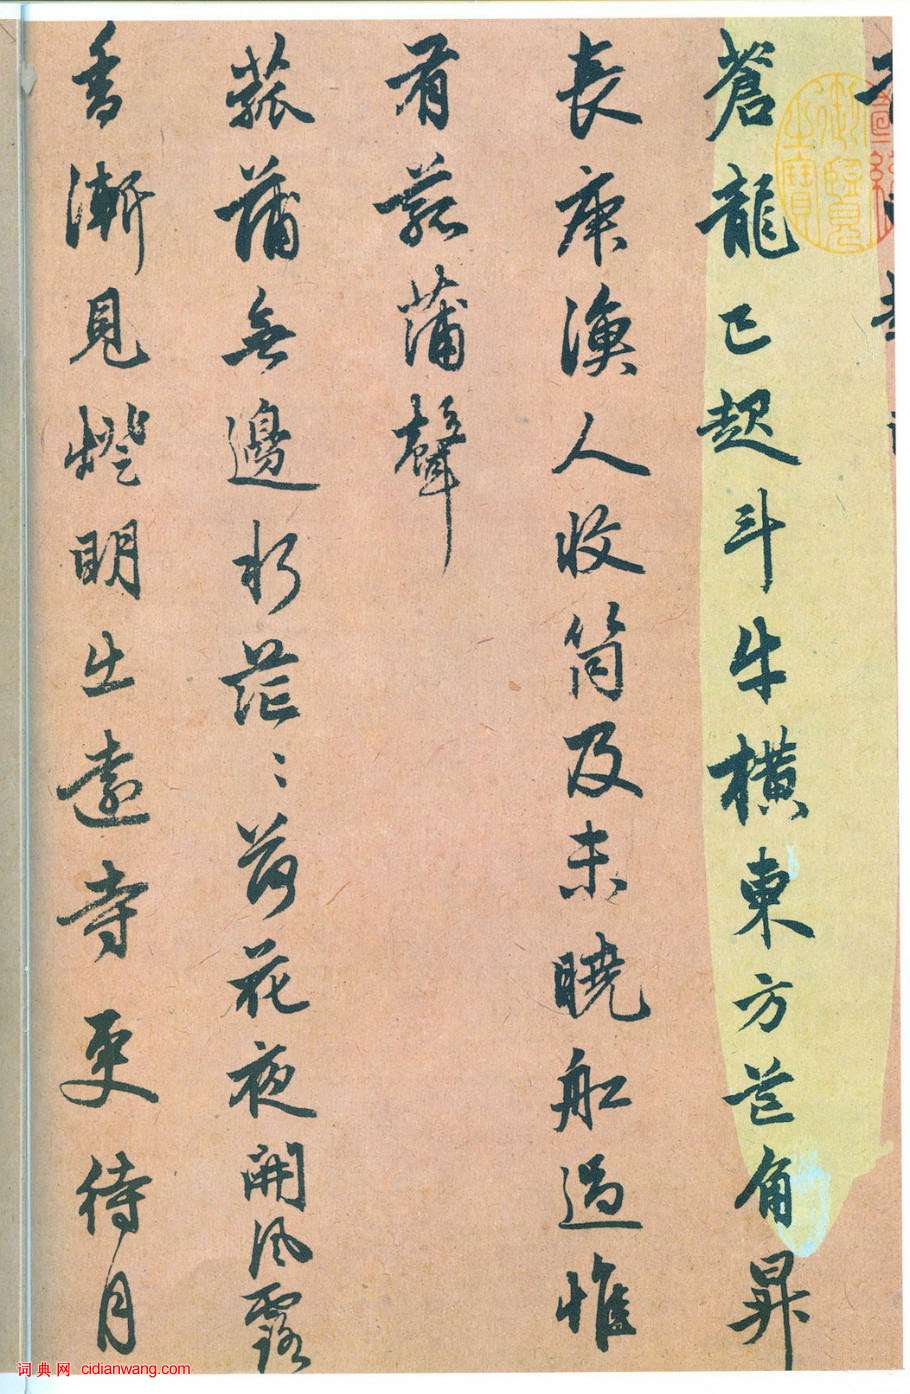 蒼龍已起斗牛橫東方芒角昇
長庚漁人收筒及未曉船過惟
有菰蒲聲
菰蒲無邊水茫〻荷花夜開風露
香漸見燈明出遠寺更待月
御覽之寶
词典网 cidianwang.com